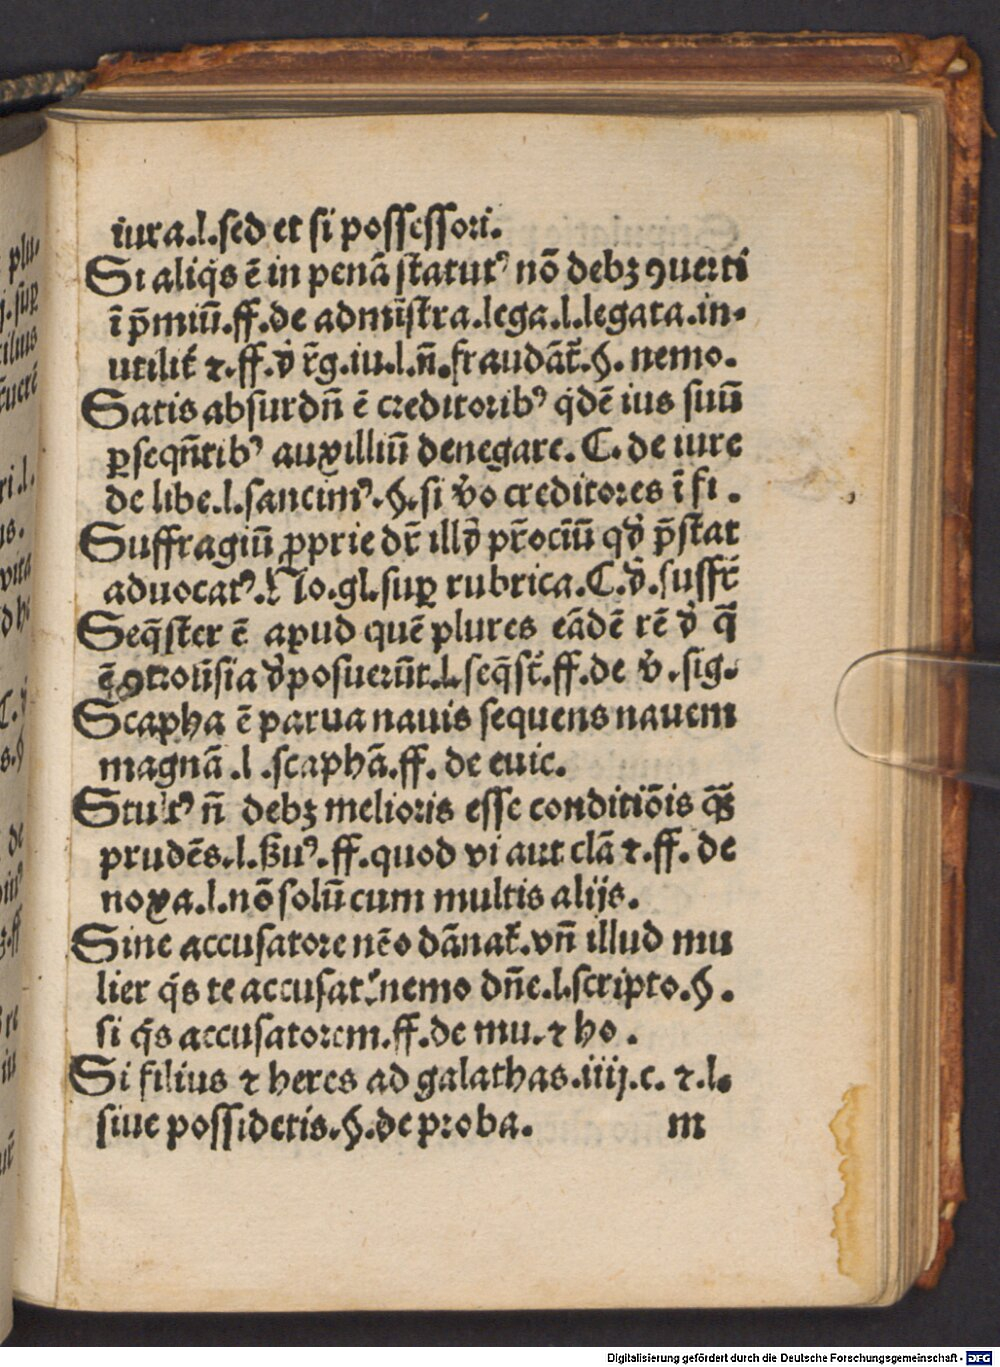 iura.l.sed et si possessori.
Si aliq̇s ē in penā statutꝰ nō debꝫ ꝯuerti
ī p̄miū.ff.de admīstra.lega.l.legata.in-
utilit̄ ⁊.ff.ď r̄g.iu.l.ñ.fraudāt̄.§. nemo.
Satis absurdñ ē creditoribꝰ q̇dē ius suū
ꝑseqñtibꝰ auxilliū denegare. C. de iure
de libe.l.sancimꝰ.§.si v̄o creditores ī fi .
Suffragiū ꝓprie dr̄ illď pr̄ociū qď p̄stat
aduocatꝰ.No.gl.suꝑ rubrica.C.ď.suffr̄
Seq̄ster ē apud quē plures eādē rē ď q̄
ē ꝯtrou̓sia ďposuerūt.l.seq̄st̄.ff.de v̄.sig.
Scapha ē parua nauis sequens nauem
magnā .l .scaphā.ff. de euic.
Stultꝰ ñ debꝫ melioris esse conditiōis q̄ꝫ
prudēs.l.ẞuꝰ.ff.quod vi aut clā ⁊.ff. de
noxa.l.nō solū cum multis alijs.
Sine accusatore nēo dānat̄.vñ illud mu
lier q̇s te accusat:nemo dñe.l.scripto.§.
si q̇s accusatorem.ff.de mu.⁊ ho .
Si filius ⁊ heres ad galathas.iiij.c. ⁊.l.
siue possidetis.§.de proba.
m
Digitalisierung gefördert durch die Deutsche Forschungsgemeinschaft - DFG